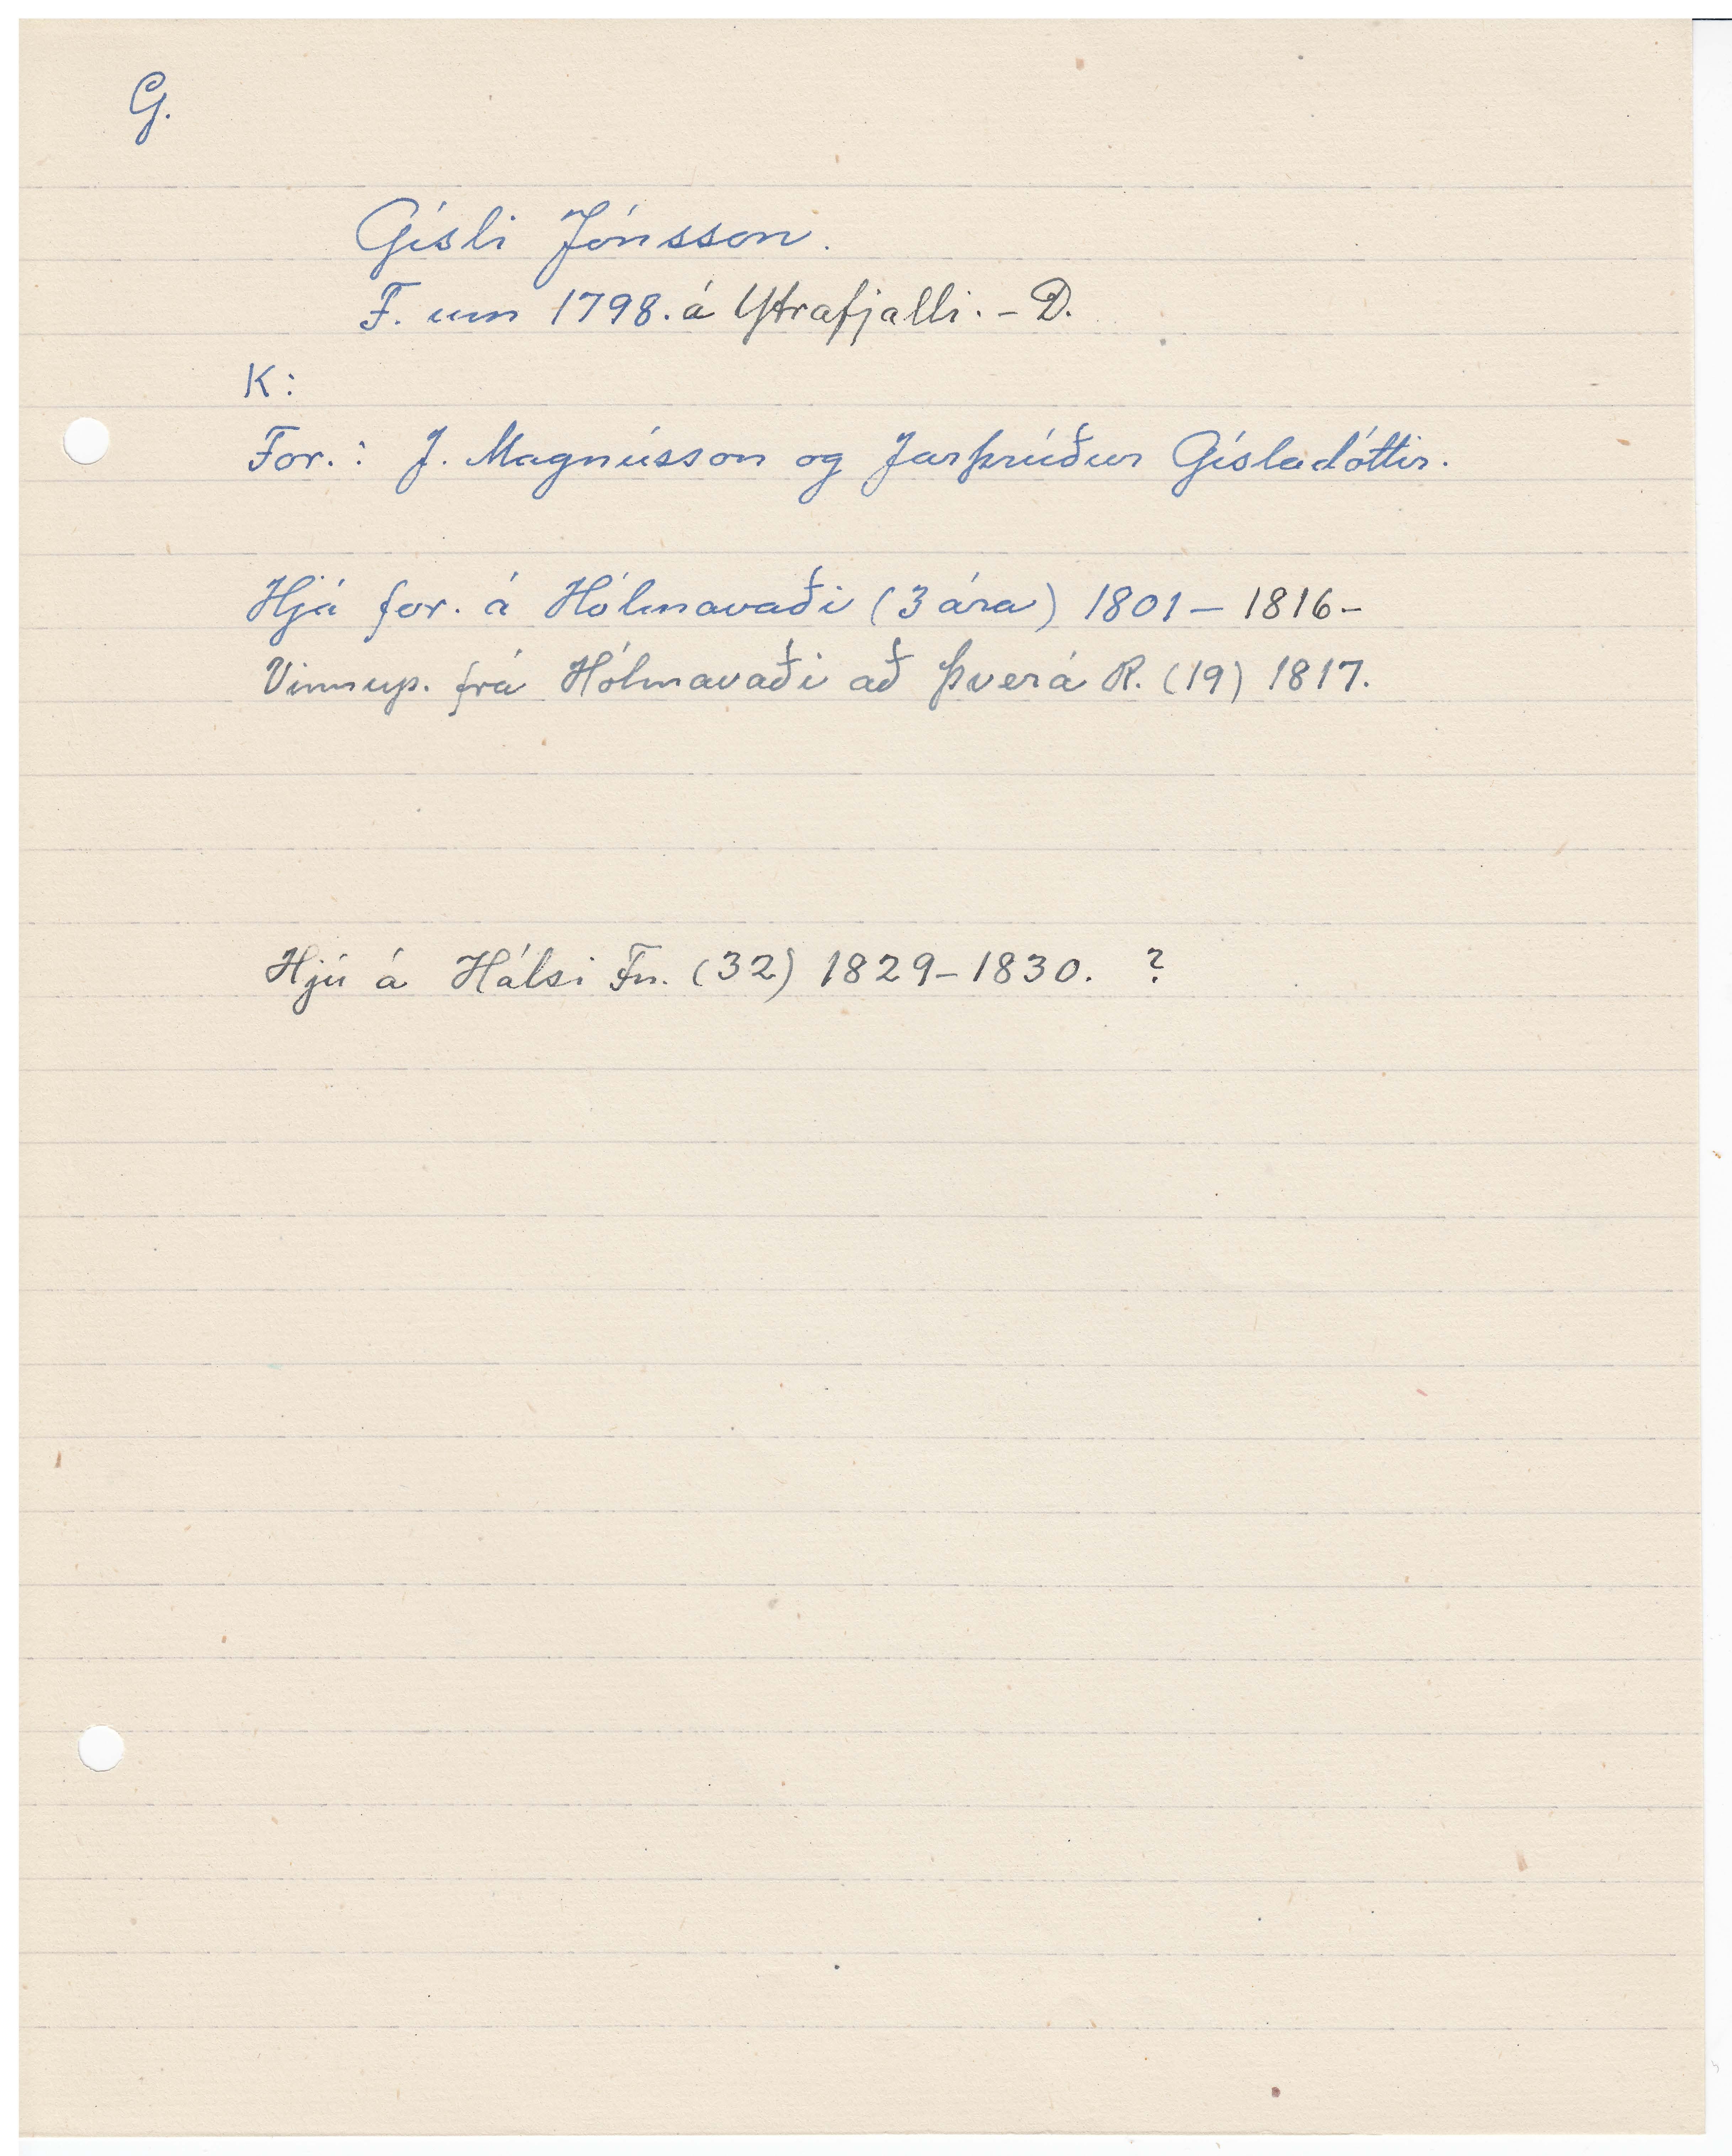 G.
Gísli Jónsson.
F. um 1798. á Ytrafjalli. - D.
K:
For.: J. Magnússon og Jarþrúður Gísladóttir.
Hjá for. á Hólmavaði (3 ára) 1801 - 1816 -
Vinnup. frá Hólmavaði að Þverá R. (19) 1817.
Hjú á Hálsi Fn. (32) 1829-1830. ?